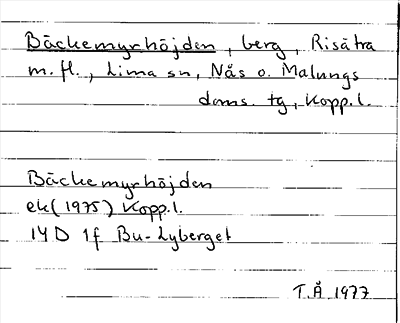 Bäckemyrhöjden, berg, Risätra
m.fl., Lima sn, Nås o. Malungs
doms. tg, Kopp.l.
Bäckemyrhöjden
ek(1975) Kopp.l.
14D 1f Bu-Lyberget
T.Å 1977